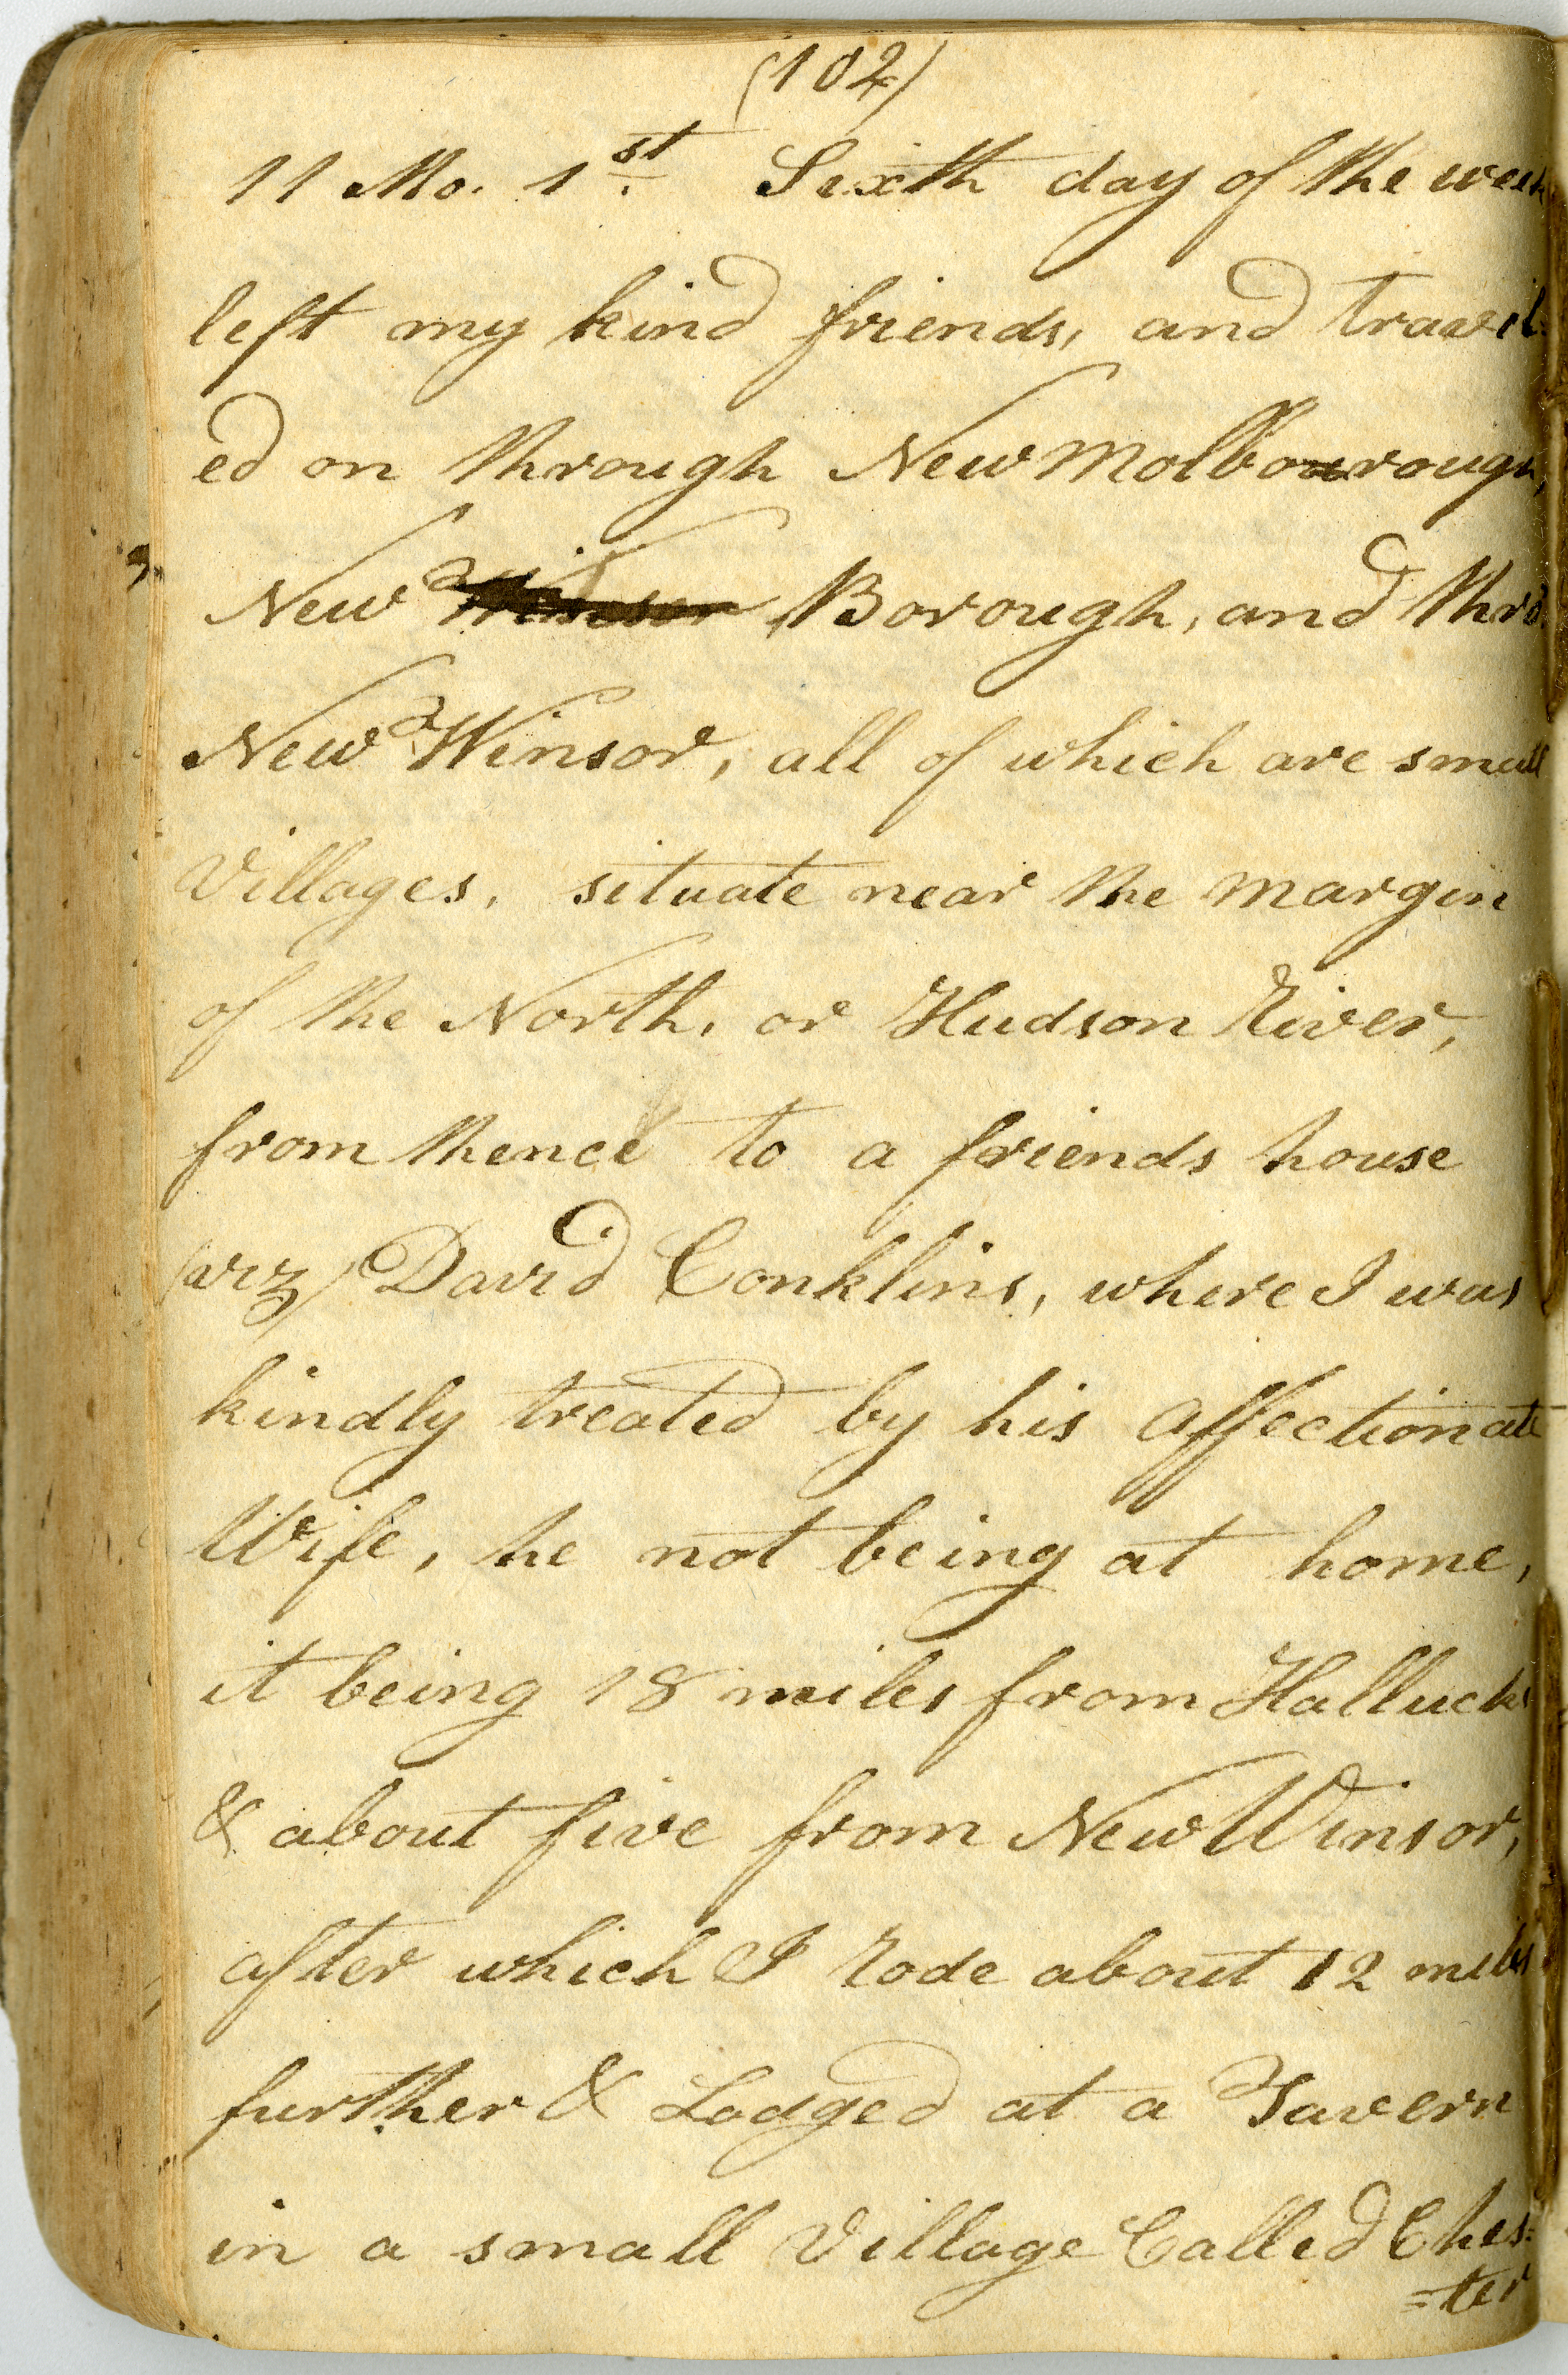 (102)
11 Mo. 1st. Sixth day of the week
left my kind friends, and travel-
ed on through New Molborough,
New Borough, and thro.
New Winsor, all of which are small
Villages, situate near the margin
of the North, or Hudson River,
from thence to a friends house
(viz) David Conklins, where I was
kindly treated by his affectionate
Wife, he not being at home,
it being 18 miles from Hallucks
& about five from New Winsor,
after which I rode about 12 miles
further & Lodged at a Tavern
in a small Village Called Ches=
=ter